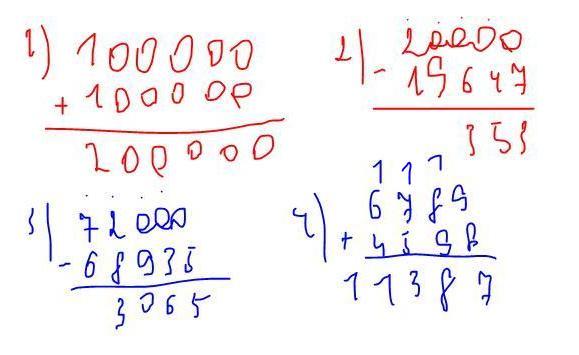 1) 100000
+ 100000
200000
2) 20000
- 19647
353
3) 72000
- 68935
3065
1 1 1
4) 6789
+ 4598
11387